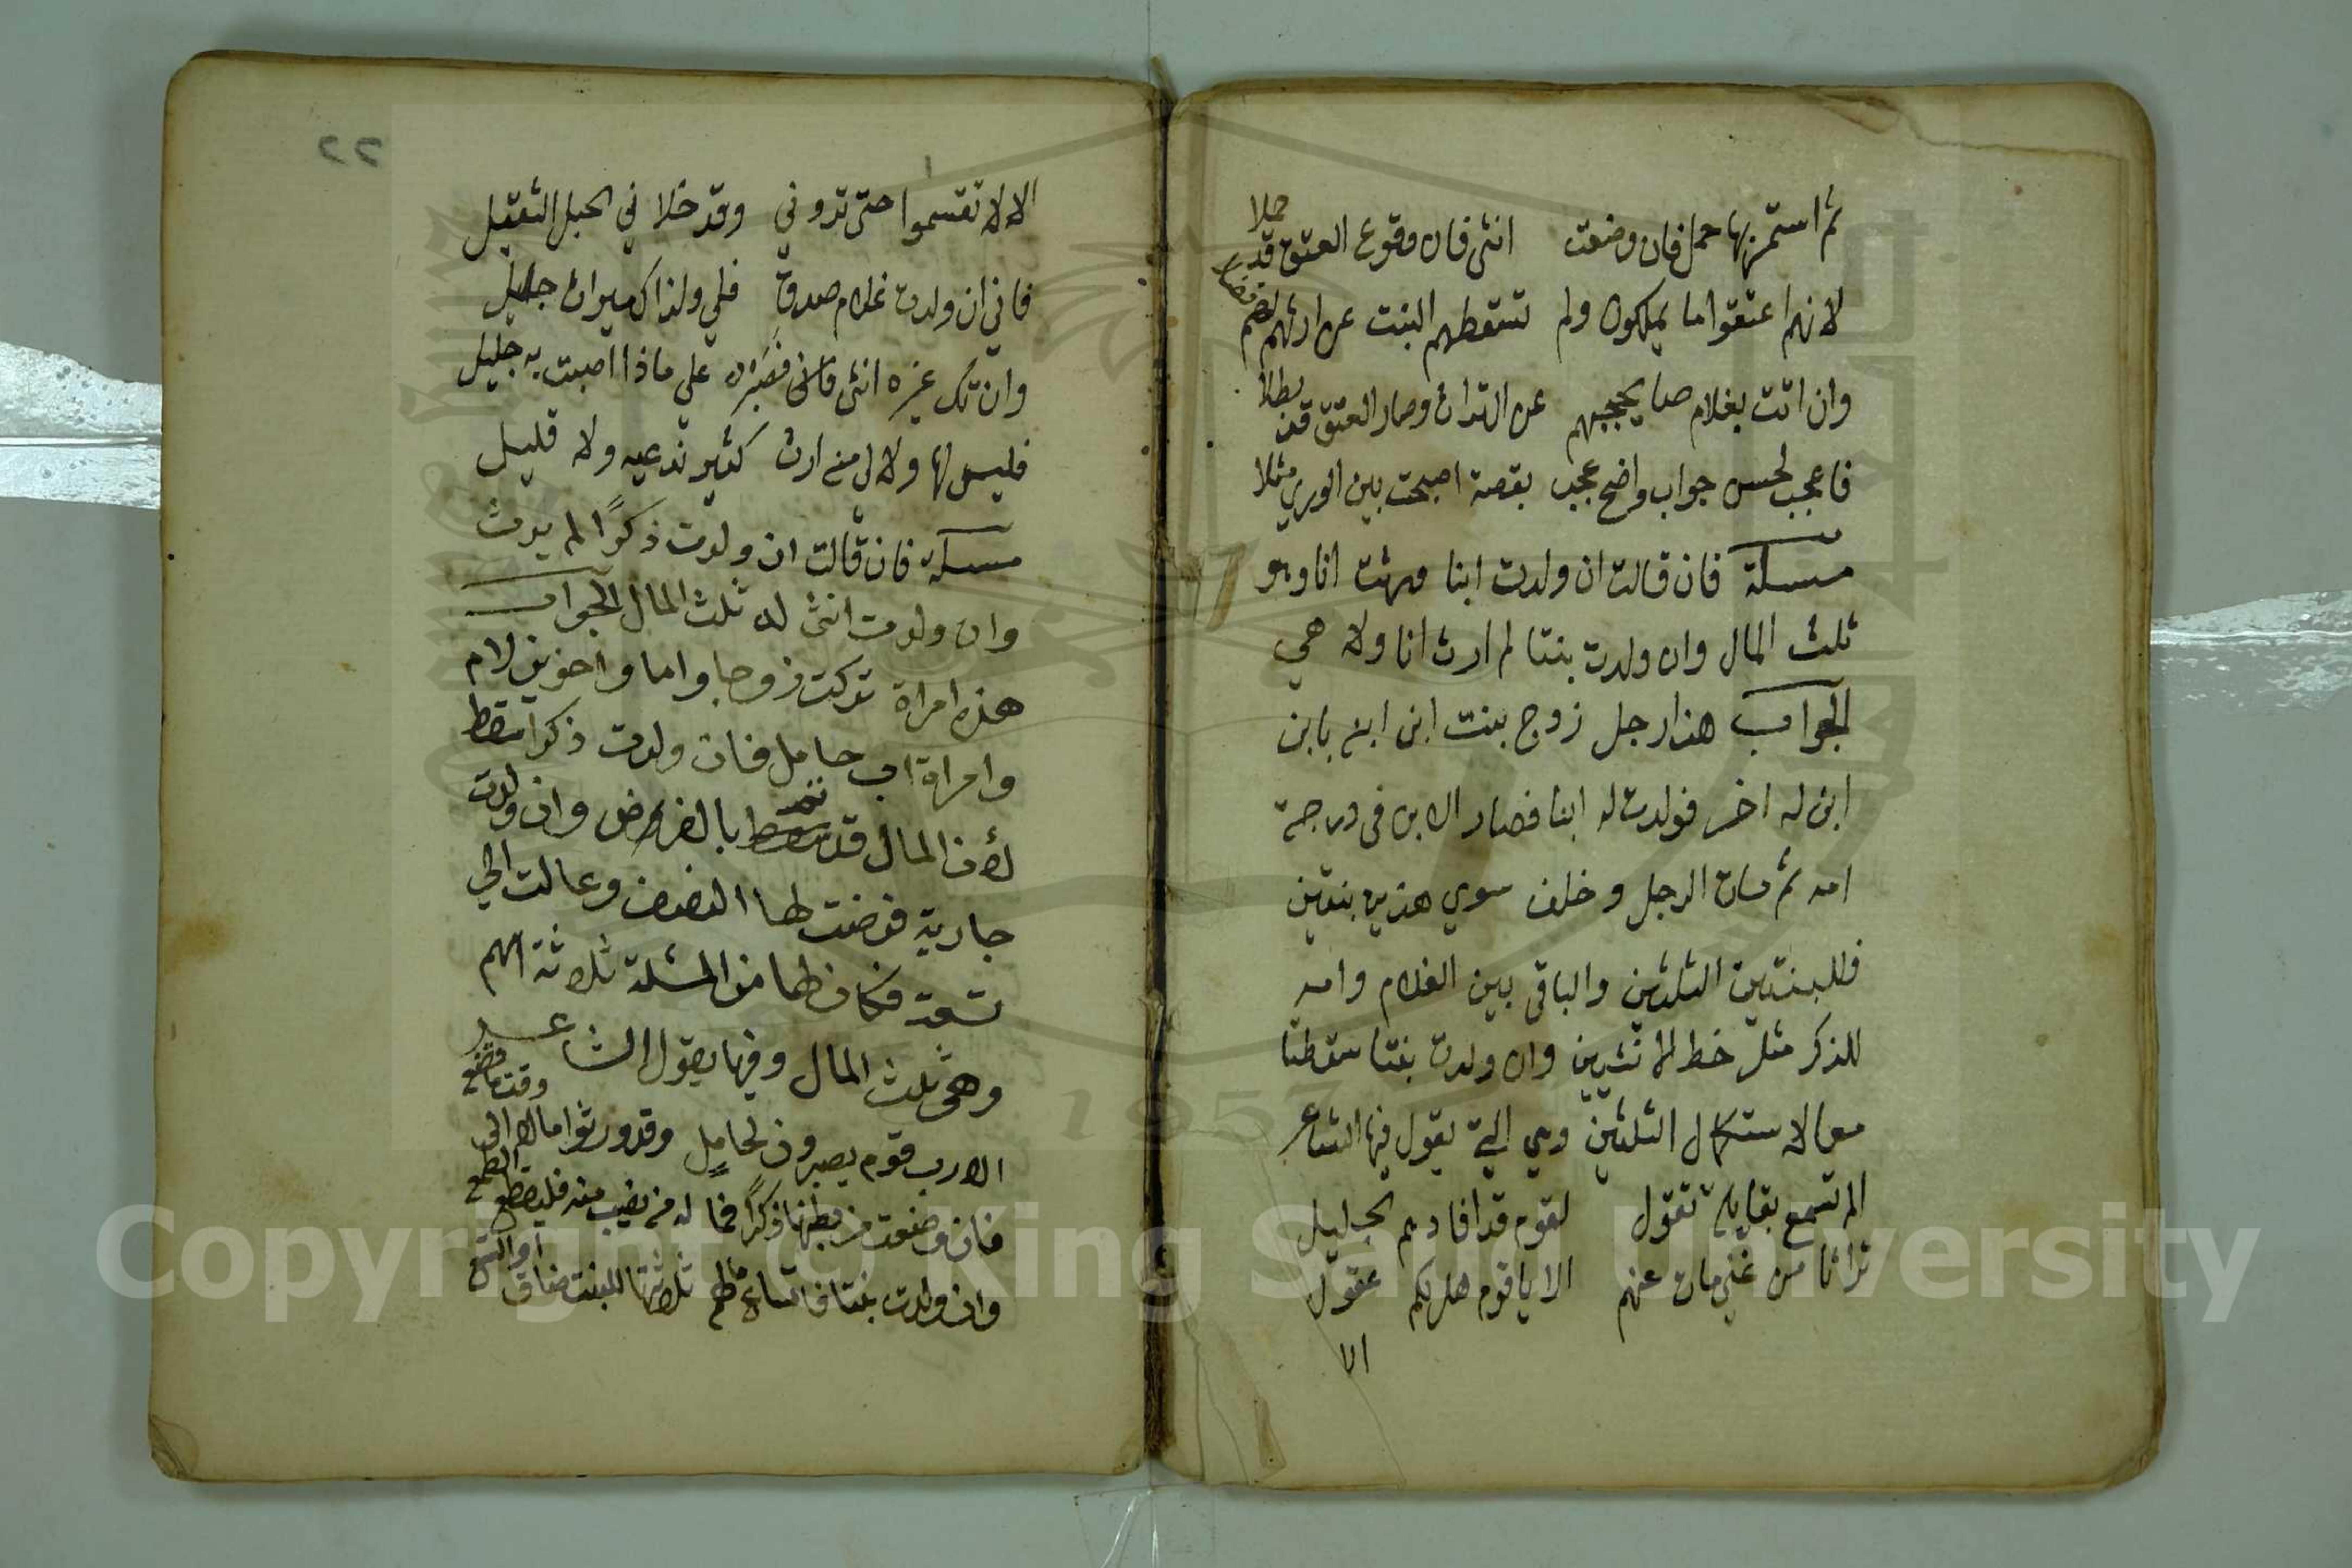 ثم استمر بها حمل فان وضعت انثى فان وقوع العتق قد حملا
لانهم اعتقوا ما يملكون ولم تسقطهم البنت عن ارثهم
وان اتت بغلام صار يحجبهم عن التراث وصار العتق قد بطلا
فاعجب لحسن جواب واضح عجب بقصة اصبحت بين الورى مثلا
مسئلة فان قالت ان ولدت ابنا ورثت انا وهو
ثلث المال وان ولدت بنتا لم ارث انا ولا هي
الجواب هذا رجل زوج بنت ابن ابنه بابن
ابن له اخر فولدت له ابنا فصار الابن في درجة
امه ثم مات الرجل وخلف سوي هذين بنتين
فللبنتين الثلثين والباقي بين الغلام وامه
للذكر مثل حظ الانثيين وان ولدت بنتا سقطتا
معا لاستكمال الثلثين وهي التي يقول فيها الشاعر
الم تسمع بقايلة تقول لقوم قد افادهم الجليل
تراثا من غني مات عنهم الا يا قوم هل لكم عقول
الا
٢٢
الا لا تقسموا حتى تروني وقد خلا في الحبل الثقيل
فاني ان ولدت غلام صدق فلي ولذاك ميراث جليل
وان تك غيره انثى فصبر على ماذا اصبت به جليل
فليس لها ولا لي منه ارث كثير تدعيه ولا قليل
مسئلة فان قالت ان ولدت ذكرًا لم يرث
وان ولدت انثى له ثلث المال الجواب
هذه امراة تركت زوجا واما واخوين لام
وامراة اب حامل فان ولدت ذكرا سقط
لأن المال قد بالفرض وان ولدت
جارية فرضت لها النصف وعالت الي
تسعة فكان لها من المسئلة ثلاثة اسهم
وهي ثلث المال وفيها يقول الشاعر
الا رب قوم يصيرون لحامل وقد ورثوا مالا الى وقت ما تضع
فان وضعت من بطنها ذكرًا فما له من نصيب منه فليقطع الطمع
وان ولدت بنتا فاتساع ثلاثتها للبنت ضاق او اتسع